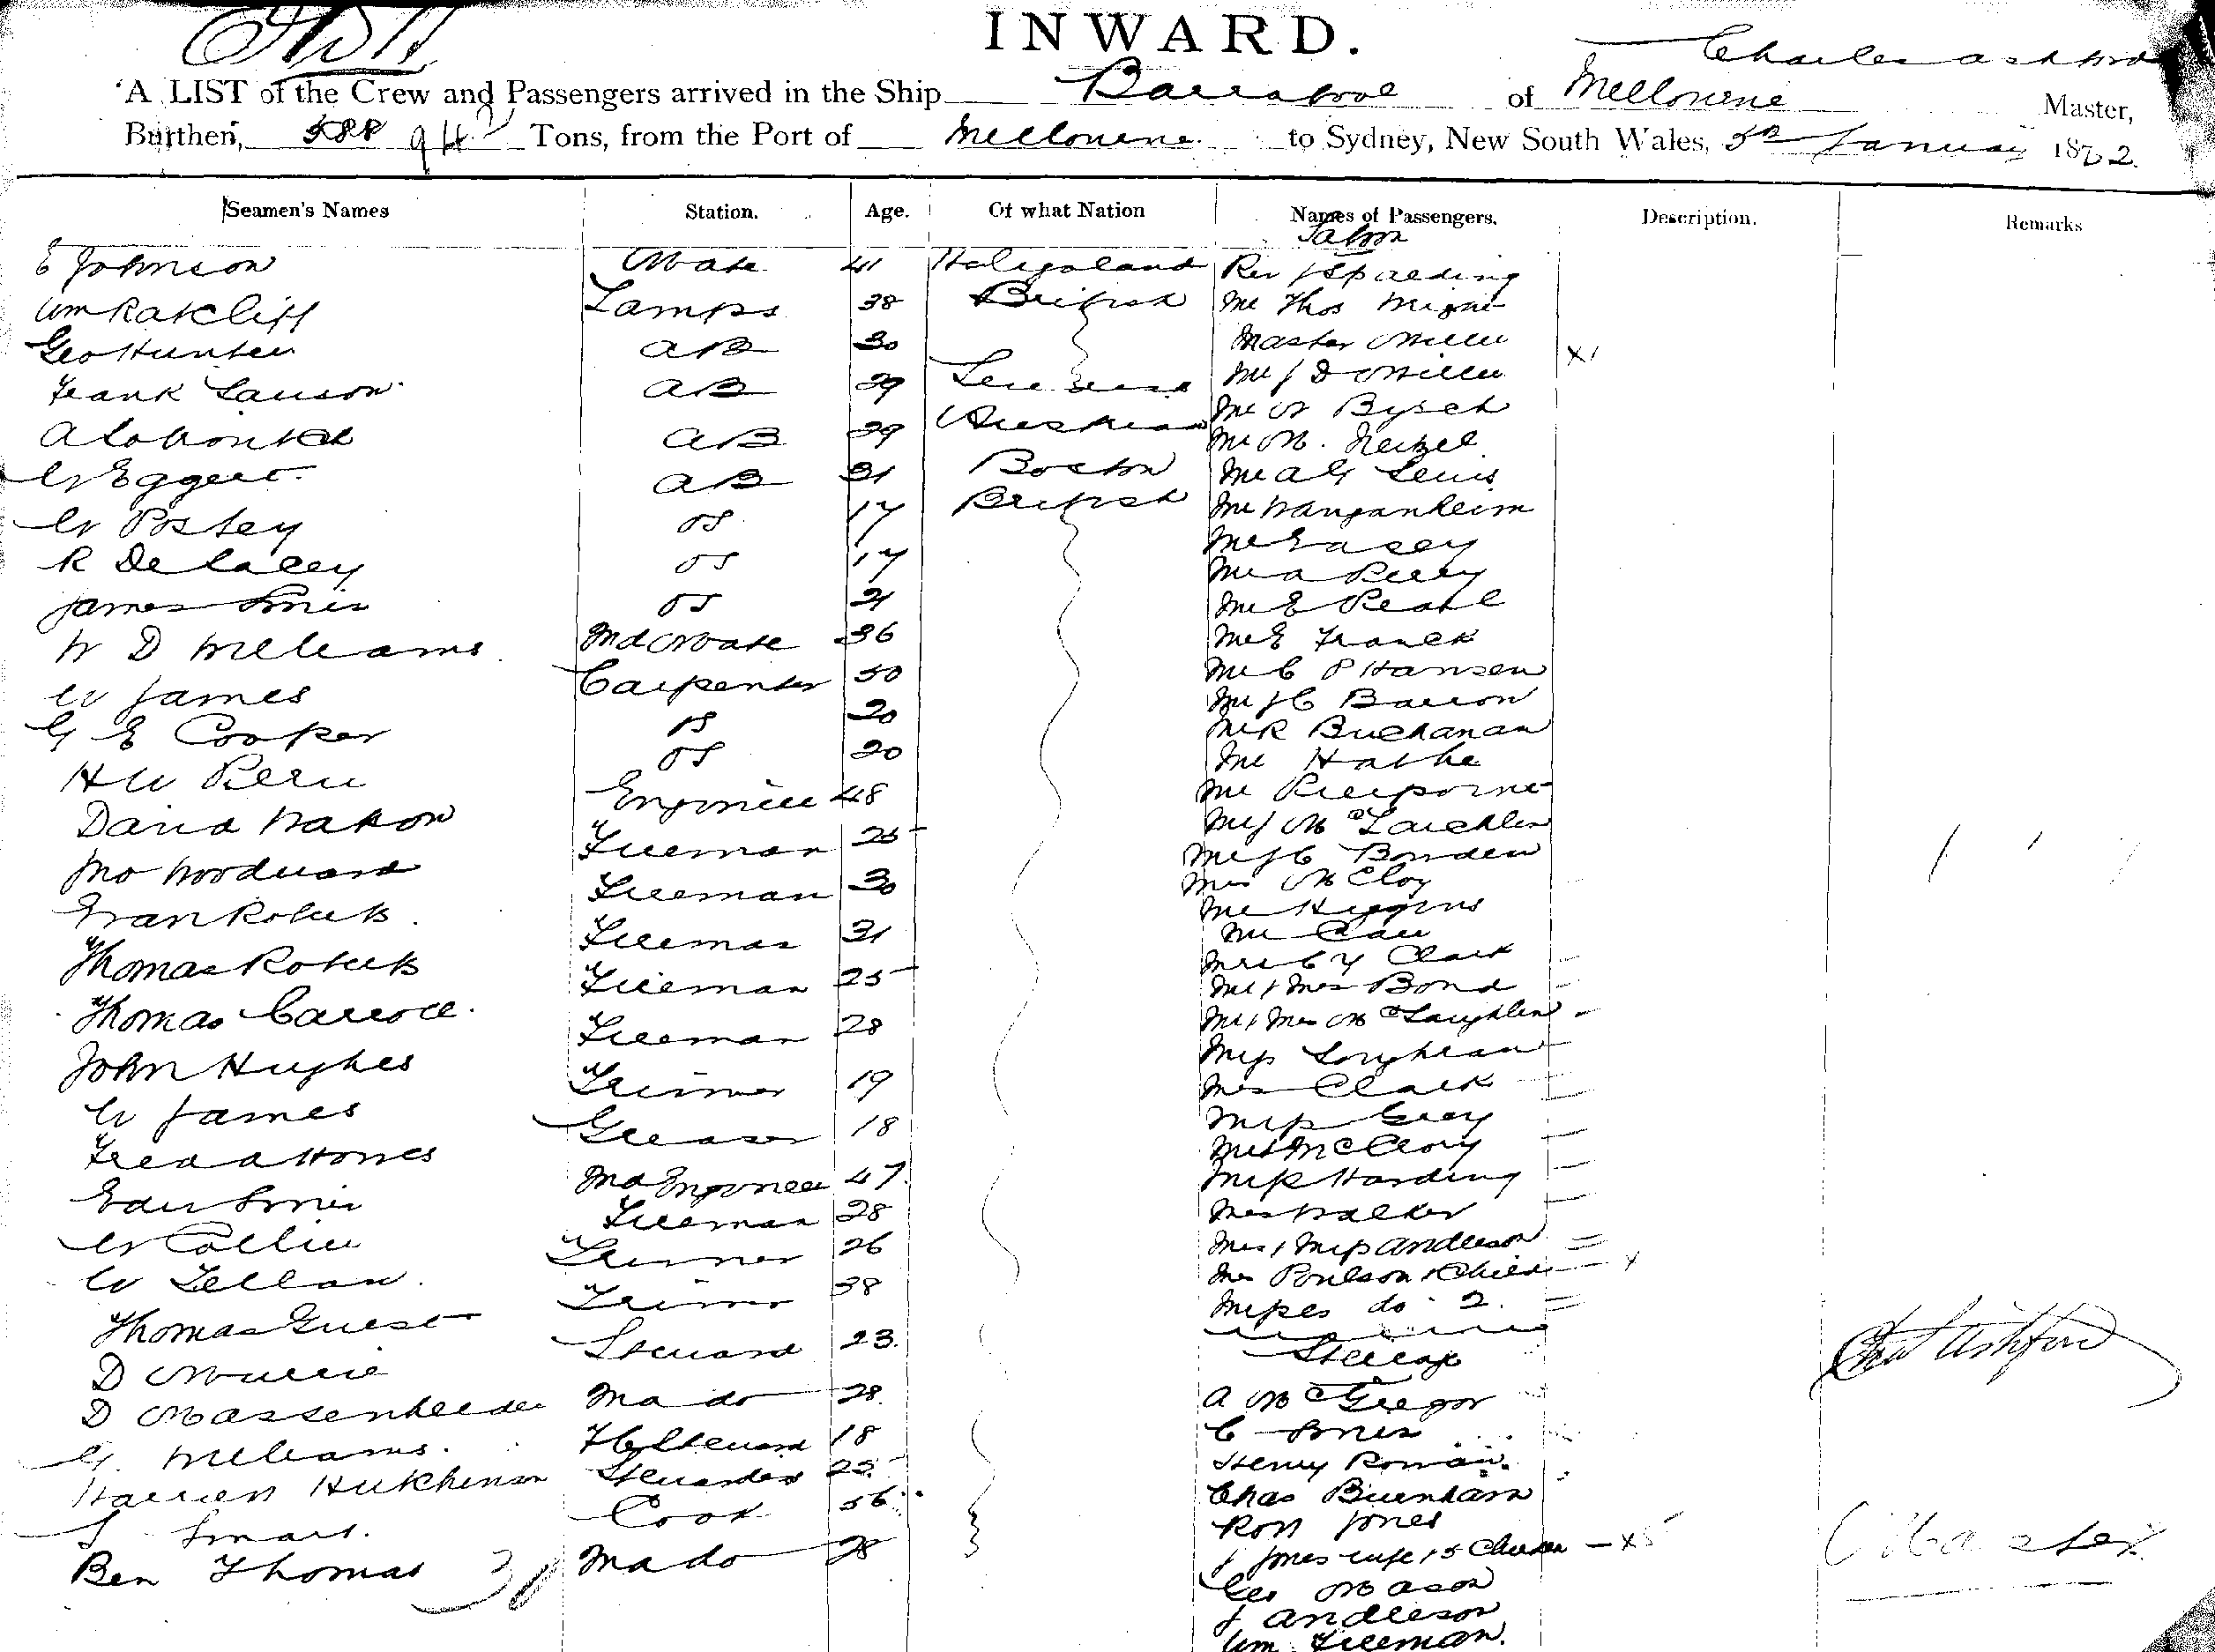 INWARD.
Charles Ashford
A LIST of the Crew and Passengers arrived in the Ship Barrabool of Melbourne Master,
Burthen, 588 94 Tons, from the Port of Melbourne to Sydney, New South Wales, 5th January 1872
Seamen's Names Station. Age. Of what Nation Names of Passengers. Description. Remarks
Saloon
E Johnson Mate 41 Heligoland Rev J Spalding
Wm Ratcliff Lamps 38 British Mr Thos
Geo Hunter AB 30 Master Miller x1
Frank Lawson AB 29 Mr J D Miller
AB 29 Austrian Mr W Bysch
W Eggert AB 31 Boston Mr M.
W Postey OS 17 British Mr A G Lewis
R De Lacey OS 17 Mr Wanganheim
James Smith OS 21 Mr Lacey
W D Williams 2nd Mate 36 Mr A Perry
W James Carpenter 50 Mr E Pearl
G E Cooper OS 20 Mr E Franck
H W OS 20 Mr C P Hansen
David Watson Engineer 48 Mr J C Barron
Jno Woodward Fireman 25 Mr R Buchanan
Evan Roberts Fireman 30 Mr
Thomas Roberts Fireman 31 Mr Pierpoint
Thomas Carroll Fireman 25 Mr J McLauchlin
John Hughes Fireman 28 Mr J C Bowden
W James Trimmer 19 Mrs McCloy
Fred A Homes Greaser 18 Mr Higgins
Edw Smith 2nd Engineer 47 Mr Carr
W Collier Fireman 28 Mrs C Y Clark
W Trimmer 26 Mr & Mrs Bond
Thomas Guest Trimmer 38 Mr & Mrs McLaughlin
D Murrie Steward 23. Miss
D 2nd do 28 Mrs Clark
G. Williams. F C Steward 18 Miss Grey
Harriett Hutchinson Stewardess 25 Mr & M McClory
S Smart. Cook 56 Miss Harding
Ben Thomas 2nd do 28 Mrs Walker
Mrs & Miss Anderson
Mrs Poulson & Child x
Misses do 2.
Steerage
A McGregor
C Smith
Henry Roman.
Chas Burnham
Robt Jones
J Jones wife & 5 Children x5
Geo Mason
J Anderson
Wm Freeman.
Chas Ashford
Master